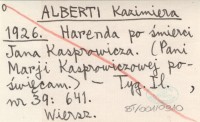 ALBERTI Kazimiera
1926. Harenda po śmierci
Jana Kasprowicza. (Pani
Marji Kasprowiczowej po-
święcam.) – Tyg. Il.,
nr 39: 641.
Wiersz.